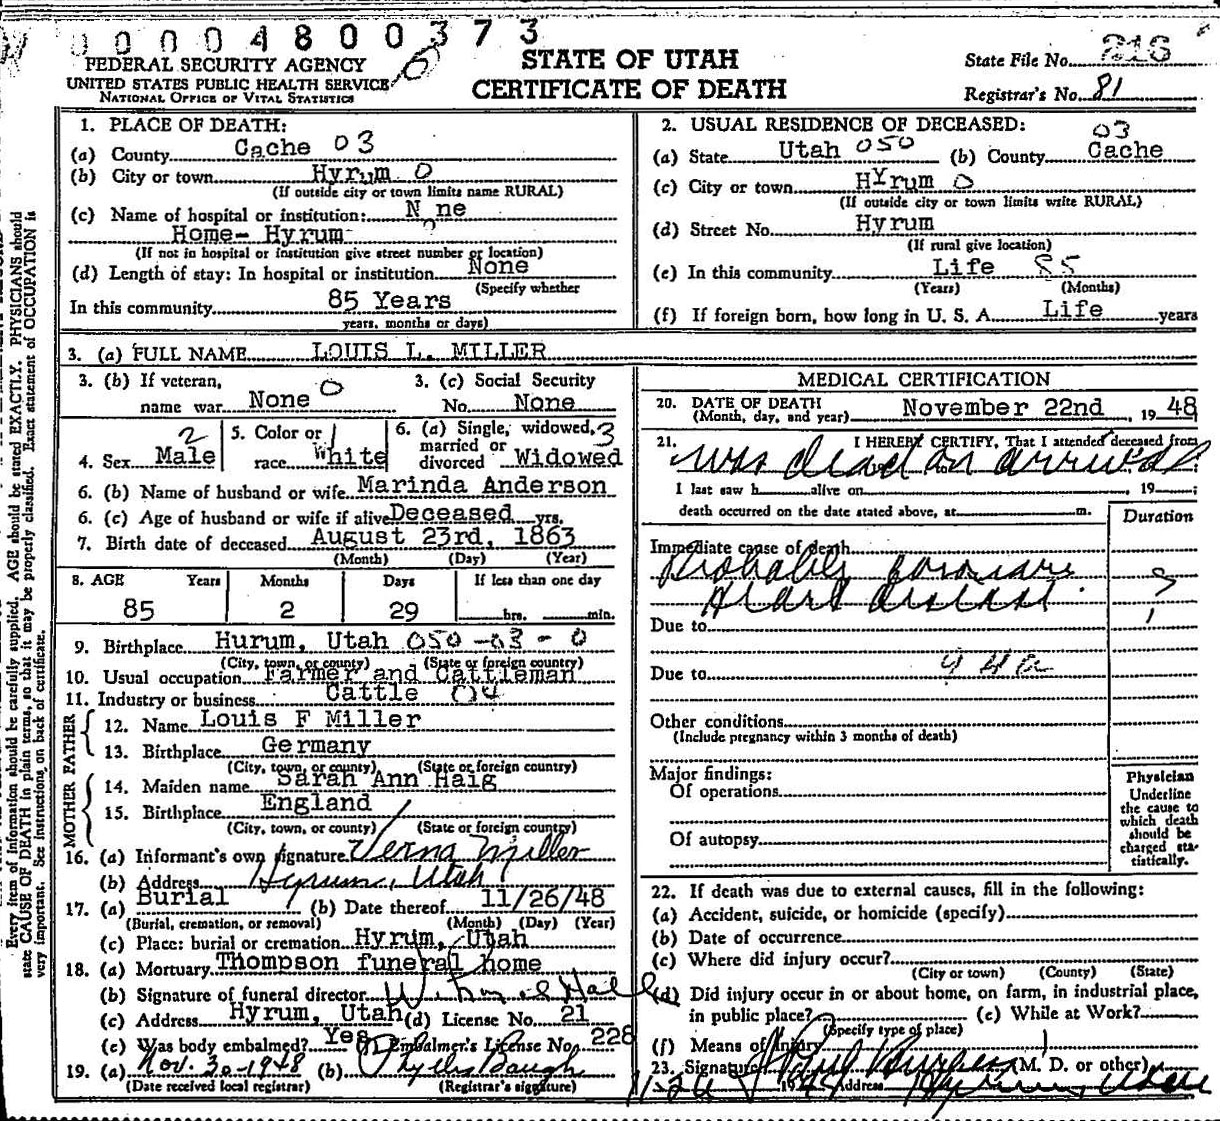 00004800373
FEDERAL SECURITY AGENCY
UNITED STATES PUBLIC HEALTH SERVICE
NATIONAL OFFICE OF VITAL STATISTICS
STATE OF UTAH
CERTIFICATE OF DEATH
State File No. 216
Registrar's No. 81
Every item of information should be carefully supplied. AGE should be stated EXACTLY. PHYSICIANS should
state CAUSE OF DEATH in plain terms, so that it may be properly classified. Exact statement of OCCUPATION is
very important. See instructions, on back of certificate.
1. PLACE OF DEATH:
(a) County Cache 03
(b) City or town Hyrum 0
(If outside city or town limits name RURAL)
(c) Name of hospital or institution: None
Home- Hyrum
(If not in hospital or institution give street number or location)
(d) Length of stay: In hospital or institution None
(Specify whether
In this community 85 Years
years, months or days)
2. USUAL RESIDENCE OF DECEASED:
(a) State Utah 050 (b) County Cache 03
(c) City or town Hyrum 0
(If outside city or town limits write RURAL)
(d) Street No. Hyrum
(If rural give location)
(e) In this community Life 85
(Years) (Months)
(f) If foreign born, how long in U. S. A. Life years
3. (a) FULL NAME LOUIS L. MILLER
3. (b) If veteran,
name war None 0
3. (c) Social Security
No. None
4. Sex Male 2
5. Color or
race White 1
6. (a) Single, widowed, 3
married or
divorced Widowed
6. (b) Name of husband or wife Marinda Anderson
6. (c) Age of husband or wife if alive Deceased yrs.
7. Birth date of deceased August 23rd, 1863
(Month) (Day) (Year)
8. AGE Years Months Days If less than one day
85 2 29 hrs. min.
9. Birthplace Hurum, Utah 050-03-0
(City, town, or county) (State or foreign country)
10. Usual occupation Farmer and Cattleman
11. Industry or business Cattle 04
FATHER
12. Name Louis F Miller
13. Birthplace Germany
(City, town, or county) (State or foreign country)
MOTHER
14. Maiden name Sarah Ann Haig
15. Birthplace England
(City, town, or county) (State or foreign country)
16. (a) Informant's own signature Verna Miller
(b) Address Hyrum, Utah
17. (a) Burial (b) Date thereof 11/26/48
(Burial, cremation, or removal) (Month) (Day) (Year)
(c) Place: burial or cremation Hyrum, Utah
18. (a) Mortuary Thompson funeral home
(b) Signature of funeral director Hall
(c) Address Hyrum, Utah (d) License No. 21
(e) Was body embalmed? Yes Embalmer's License No. 228
19. (a) Nov. 30-1948 (b) Phyllis Baugh
(Date received local registrar) (Registrar's signature)
MEDICAL CERTIFICATION
20. DATE OF DEATH
(Month, day, and year) November 22nd , 1948
21. I HEREBY CERTIFY, That I attended deceased from
was dead on arrival
I last saw h alive on , 19 ;
death occurred on the date stated above, at m.
Duration
Immediate cause of death
Probably coronary
heart disease
?
Due to
Due to
Other conditions
(Include pregnancy within 3 months of death)
Major findings:
Of operations
Of autopsy
Physician
Underline
the cause to
which death
should be
charged sta-
tistically.
22. If death was due to external causes, fill in the following:
(a) Accident, suicide, or homicide (specify)
(b) Date of occurrence
(c) Where did injury occur?
(City or town) (County) (State)
(d) Did injury occur in or about home, on farm, in industrial place,
in public place? (e) While at Work?
(Specify type of place)
(f) Means of Injury
23. Signature (M. D. or other)
11-26 Address Hyrum, Utah